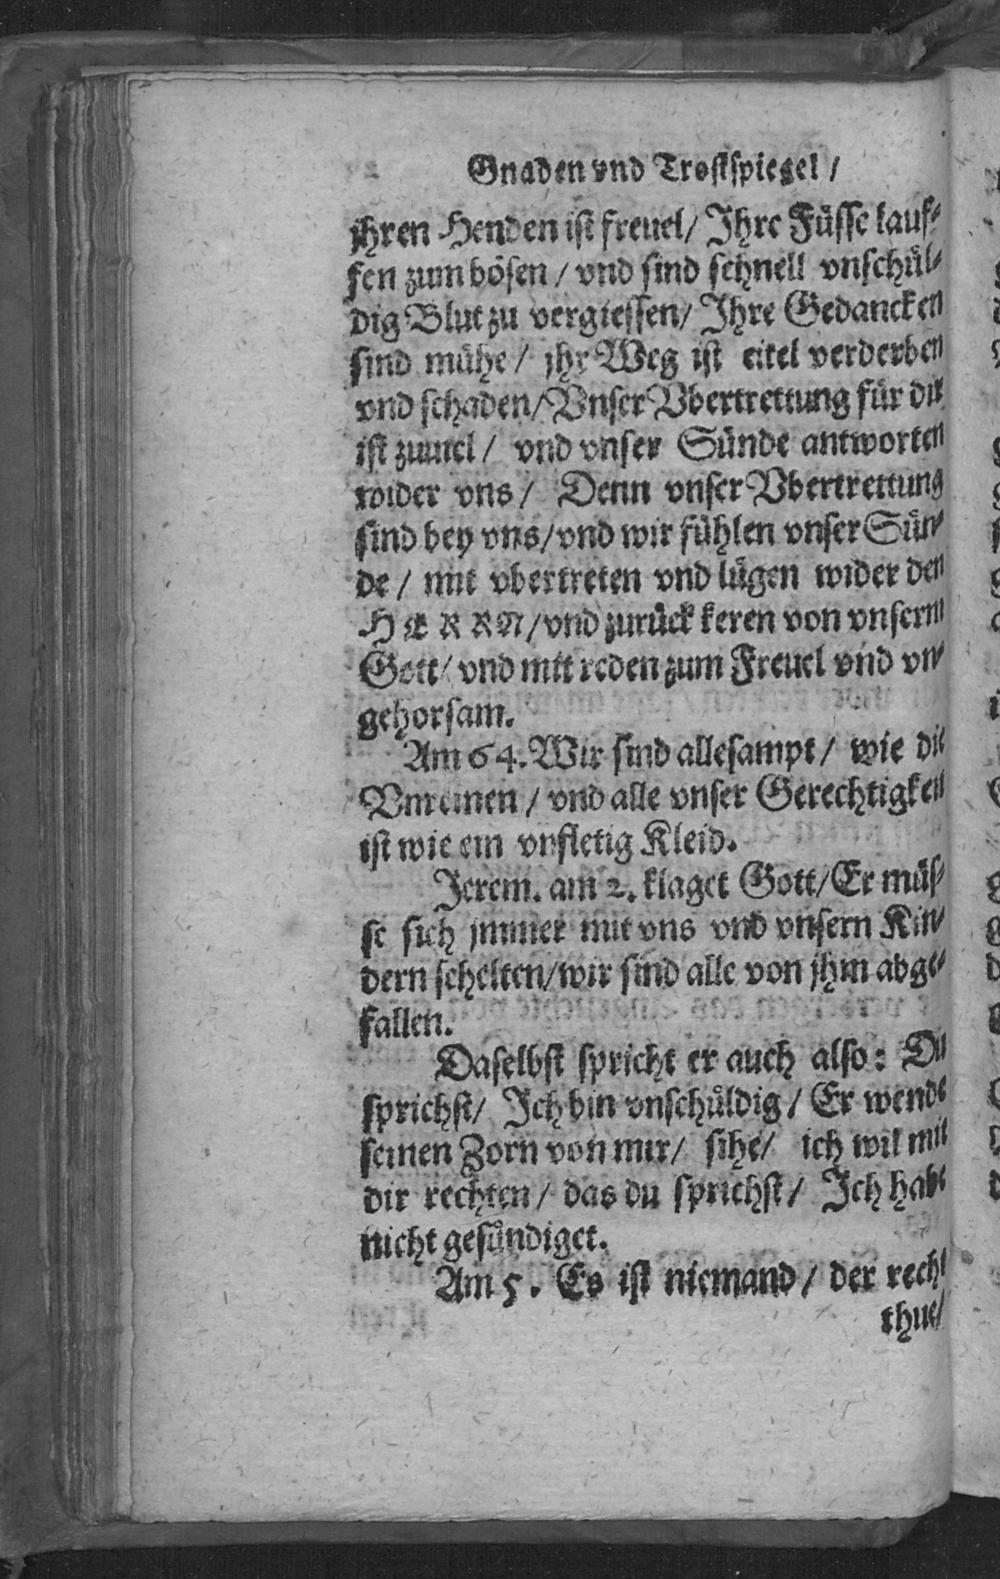 Gnaden vnd Trostspiegel /
jhren Henden ist freuel/ Ihre Füsse lauf-
fen zum bösen / vnd sind schnell vnschül-
dig Blut zu vergiessen/ Ihre Gedancken
sind mühe / jhr Weg ist eitel verderben
vnd schaden/ Vnser Vbertrettung für dir
ist zuuiel / vnd vnser Sünde antworten
wider vns / Denn vnser Vbertrettung
sind bey vns/ vnd wir fühlen vnser Sün-
de / mit vbertreten vnd lügen wider den
HERRN/ vnd zurück keren von vnserm
Gott/ vnd mit reden zum Freuel vnd vn-
gehorsam.
Am 64. Wir sind allesampt / wie die
Vnreinen / vnd alle vnser Gerechtigkeit
ist wie ein vnfletig Kleid.
Jerem. am 2. klaget Gott/ Er müs-
se sich jmmer mit vns vnd vnsern Kin-
dern schelten/ wir sind alle von jhm abge-
fallen.
Daselbst spricht er auch also: Du
sprichst/ Ich bin vnschüldig / Er wende
seinen Zorn von mir/ sihe/ ich wil mit
dir rechten / das du sprichst / Ich habe
nicht gesündiget.
Am 5. Es ist niemand / der recht
thue/